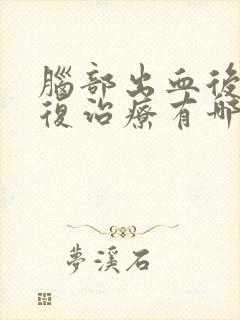 腦部出血後
復治療有哪
夢溪石